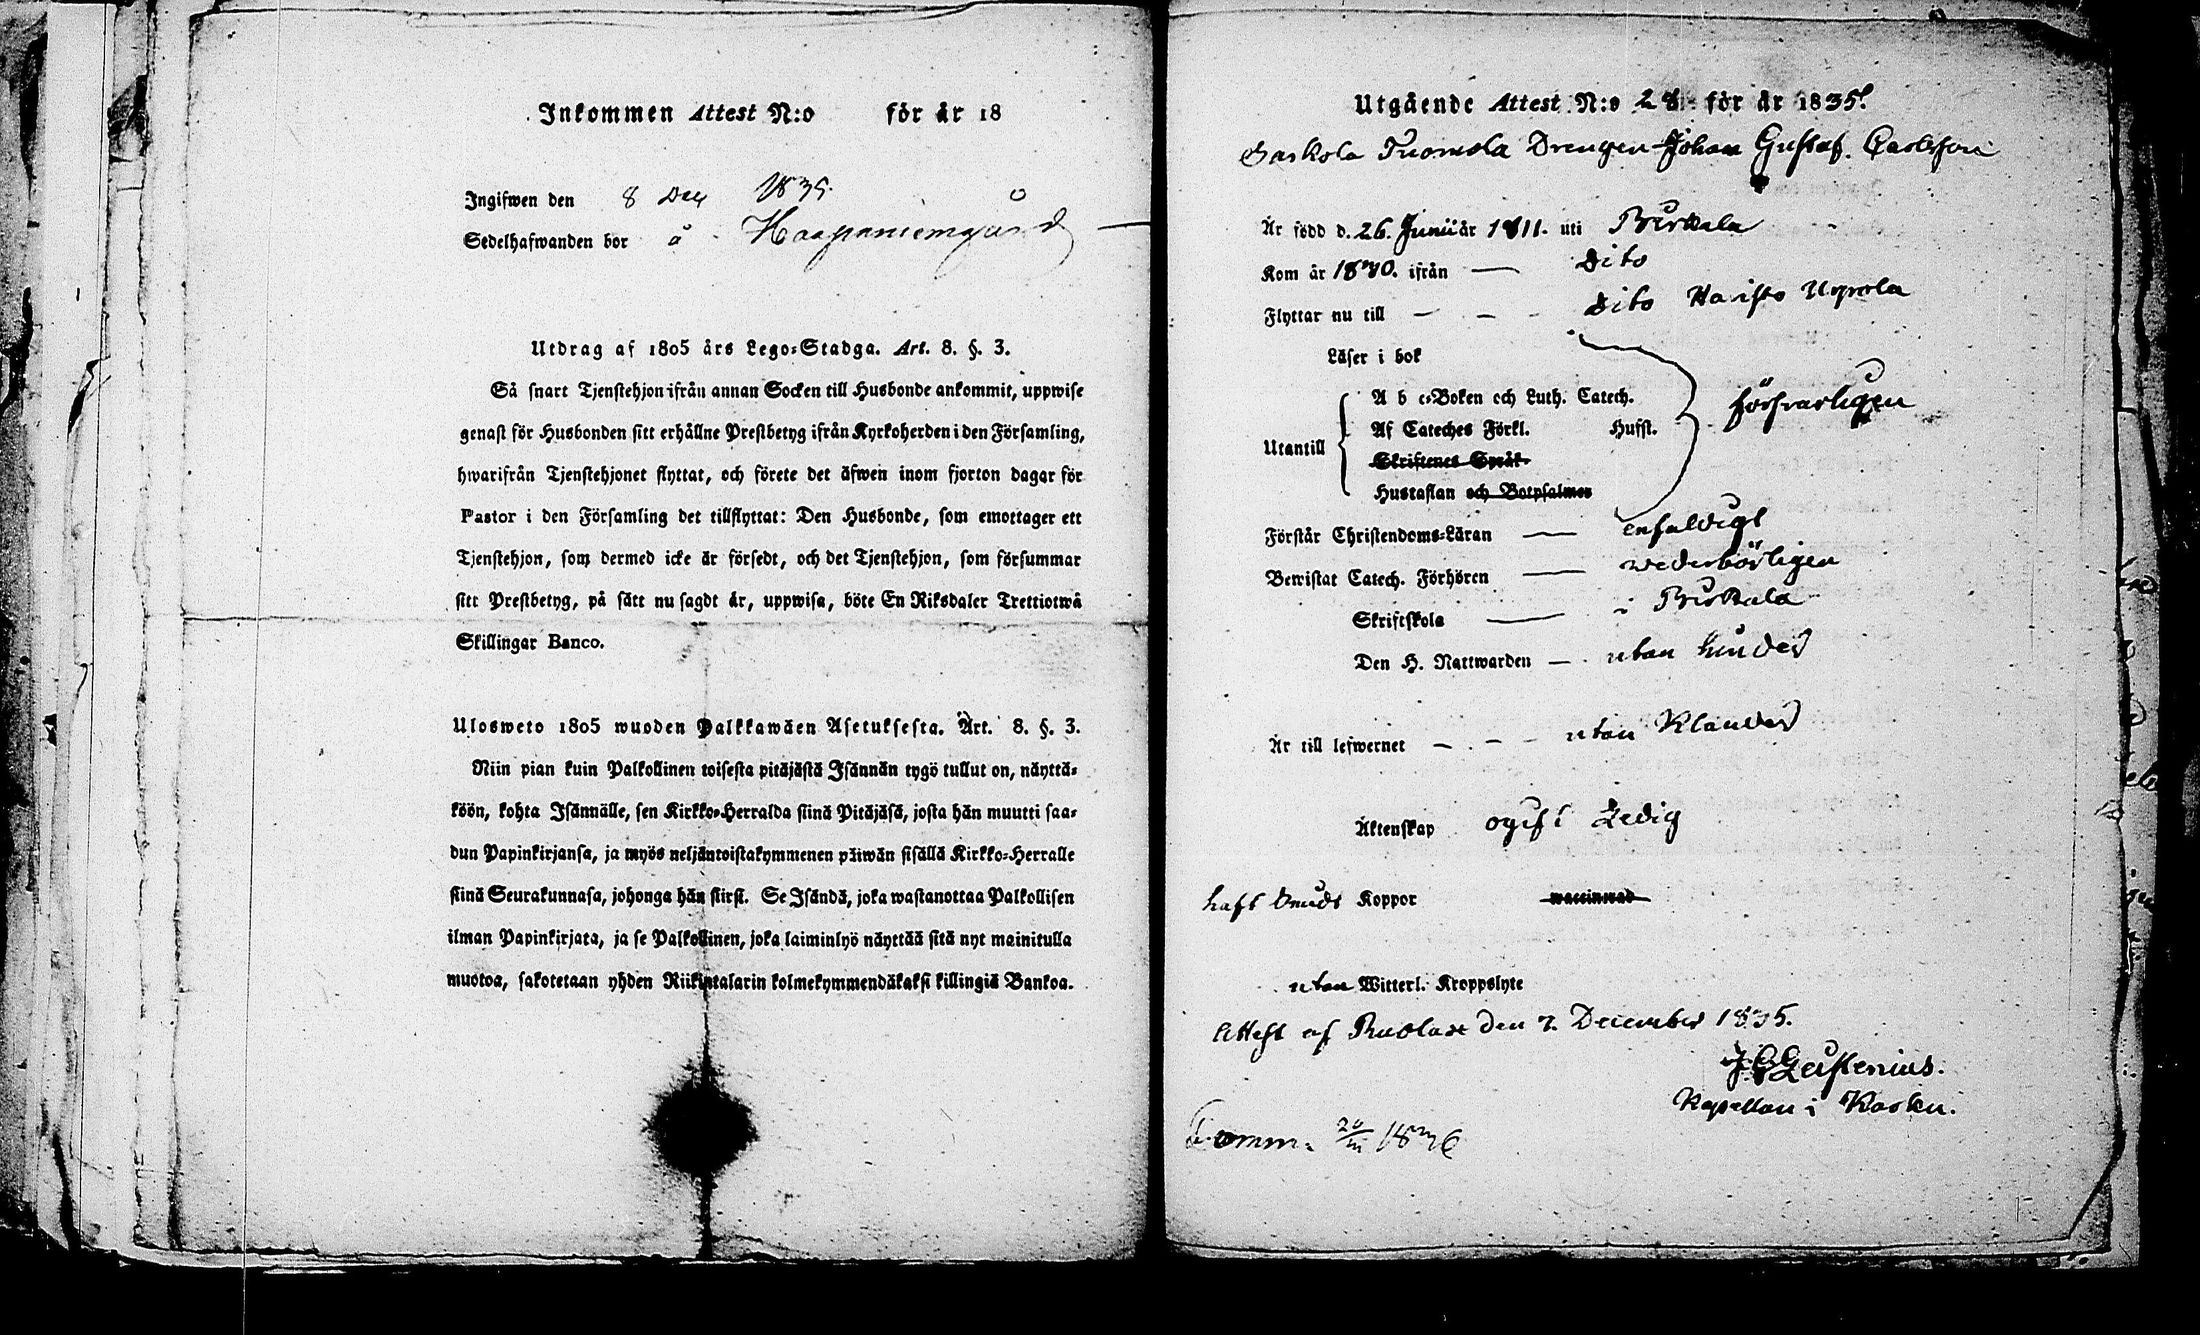 Inkommen Attest N:o för år 18
Ingifwen den 8 Dec 1835.
Sedelhafwanden bor å Haapaniemgård
Utdrag af 1805 års Lego-Stadga. Art. 8. §. 3.
Så snart Tjenstehjon ifrån annan Socken till Husbonde ankommit, uppwise
genast för Husbonden sitt erhållne Prestbetyg ifrån Kyrkoherden i den Församling,
hwarifrån Tjenstehjonet flyttat, och förete det äfwen inom fjorton dagar för
Pastor i den Församling det tillflyttat: Den Husbonde, som emottager ett
Tjenstehjon, som dermed icke är försedt, och det Tjenstehjon, som försummar
sitt Prestbetyg, på sätt nu sagdt är, uppwisa, böte En Riksdaler Trettiotwå
Skillingar Banco.
Ulosweto 1805 wuoden Palkkawäen Asetuksesta. Art. 8. §. 3.
Niin pian kuin Palkollinen toisesta pitäjästä Isännän tygö tullut on, näyttä-
köön, kohta Isännälle, sen Kirkko-Herralda siinä Pitäjäsä, josta hän muutti saa-
dun Papinkirjansa, ja myös neljäntoistakymmenen päiwän sisällä Kirkko-Herralle
siinä Seurakunnasa, johonga hän siirsi. Se Isändä, joka wastanottaa Palkollisen
ilman Papinkirjata, ja se Palkollinen, joka laiminlyö näyttää sitä nyt mainitulla
muotoa, sakotetaan yhden Riikintalarin kolmekymmendäkaksi killingiä Bankoa.
Utgående Attest N:o 28 för år 1835.
Saskola Tuomola Drengen Johan Gustaf Carlsson
Är född d. 26. Junii år 1811. uti Birkala
Kom år 1830. ifrån — Dito
Flyttar nu till — - - Dito Haristo Uppola
Läser i bok
A b c-Boken och Luth. Catech.
Af Cateches Förkl. Hufst.
Utantill försvarligen
Skriftenes Språk
Hustaflan och Botpsalmer
Förstår Christendoms-Läran — enfaldigt
Bewistat Catech. Förhören — wederbörligen
Skriftskola — i Birkala
Den H. Nattwarden — utan hinder
Är till lefwernet — - - utan Klander
Äktenskap ogift Ledig
haft Koppor
utan Witterl. Kroppslyte
Attest af den 7. December 1835.
Leistenius.
Kapellan i
1836